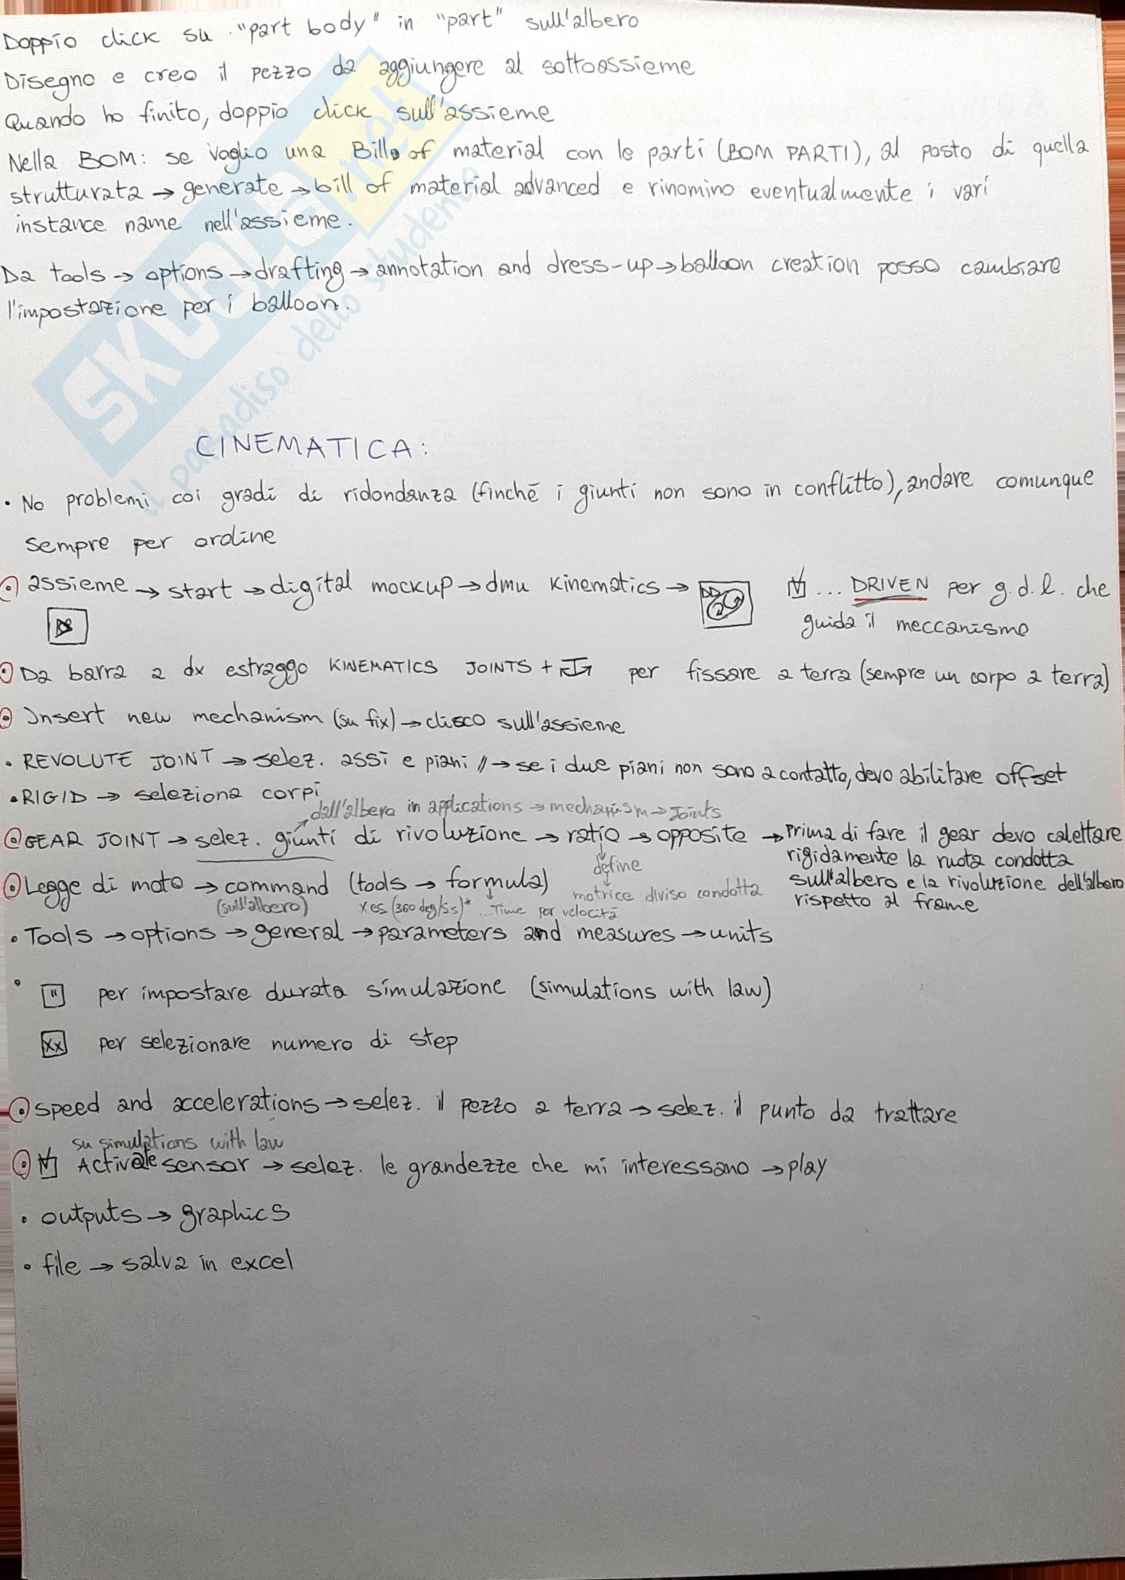 Doppio click su "part body" in "part" sull'albero
Disegno e creo il pezzo da aggiungere al sottoassieme
Quando ho finito, doppio click sull'assieme
Nella BOM: se voglio una Bill of material con le parti (BOM PARTI), al posto di quella
strutturata → generate → bill of material advanced e rinomino eventualmente i vari
instance name nell'assieme.
Da tools → options → drafting → annotation and dress-up → balloon creation posso cambiare
l'impostazione per i balloon.
SKUOLA.net
il paradiso dello studente
CINEMATICA:
• No problemi coi gradi di ridondanza (finché i giunti non sono in conflitto), andare comunque
sempre per ordine
• assieme → start → digital mockup → dmu kinematics → ... DRIVEN per g.d.l. che
guida il meccanismo
• Da barra a dx estraggo KINEMATICS JOINTS + per fissare a terra (sempre un corpo a terra)
• Insert new mechanism (su fix) → clicco sull'assieme
• REVOLUTE JOINT → selez. assi e piani // → se i due piani non sono a contatto, devo abilitare offset
• RIGID → seleziona corpi
dall'albero in applications → mechanism → Joints
• GEAR JOINT → selez. giunti di rivoluzione → ratio → opposite → Prima di fare il gear devo calettare
rigidamente la ruota condotta
define
• Legge di moto → command (tools → formula) motrice diviso condotta sull'albero e la rivoluzione dell'albero
(sull'albero) x es (360 deg/5s)* ..Time per velocità rispetto al frame
• Tools → options → general → parameters and measures → units
• per impostare durata simulazione (simulations with law)
XX per selezionare numero di step
• speed and accelerations → selez. il pezzo a terra → selez. il punto da trattare
su simulations with law
• Activate sensor → selez. le grandezze che mi interessano → play
• outputs → graphics
• file → salva in excel